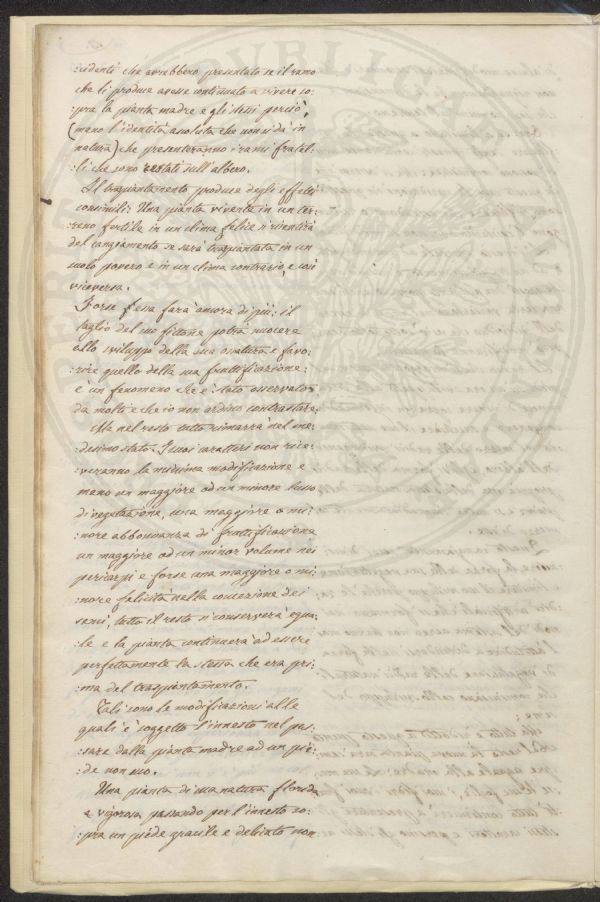 :cidenti che avrebbero presentato se il ramo
che li produce avesse continuato a vivere so:
:pra la pianta madre e gli stessi perciò,
(meno l'identità assoluta che non si dà in
natura) che presenteranno i rami fratel:
:li che sono restati sull'albero.
Il traspiantamento produce degli effetti
consimili: Una pianta vivente in un ter:
:reno fertile in un clima felice risentirà
del cangiamento se sarà traspiantata in un
suolo povero e in un clima contrario, e così
viceversa.
Forse essa farà ancora di più: il
taglio del suo fittone potrà nuocere
allo sviluppo della sua ossatura e favo:
:rire quello della sua fruttificazione:
è un fenomeno che è stato osservato
da molti e che io non ardisco contrastare.
Ma nel resto tutto rimarrà nel me:
desimo stato. I suoi caratteri non rice:
veranno la minima modificazione e
meno un maggiore od un minore lusso
di vegetazione, una maggiore o mi:
:nore abbondanza di fruttificazione
un maggiore od un minor volume nei
pericarpi e forse una maggiore o mi:
:nore felicità nella concezione dei
semi, tutto il resto si conserverà egua:
le e la pianta continuerà ad essere
perfettamente la stessa che era pri:
:ma del traspiantamento.
Tali sono le modificazioni alle
quali è soggetto l'innesto nel pas:
:sare dalla pianta madre ad un pie:
:de non suo.
Una pianta di sua natura florida
e vigorosa passando per l'innesto so:
:pra un piede gracile e debiato non